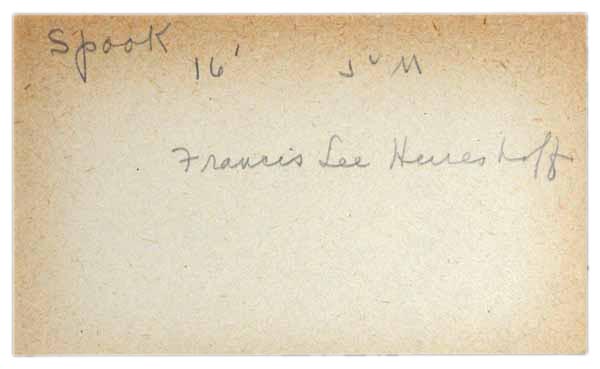 Spook
16'
Francis Lee Herreshoff